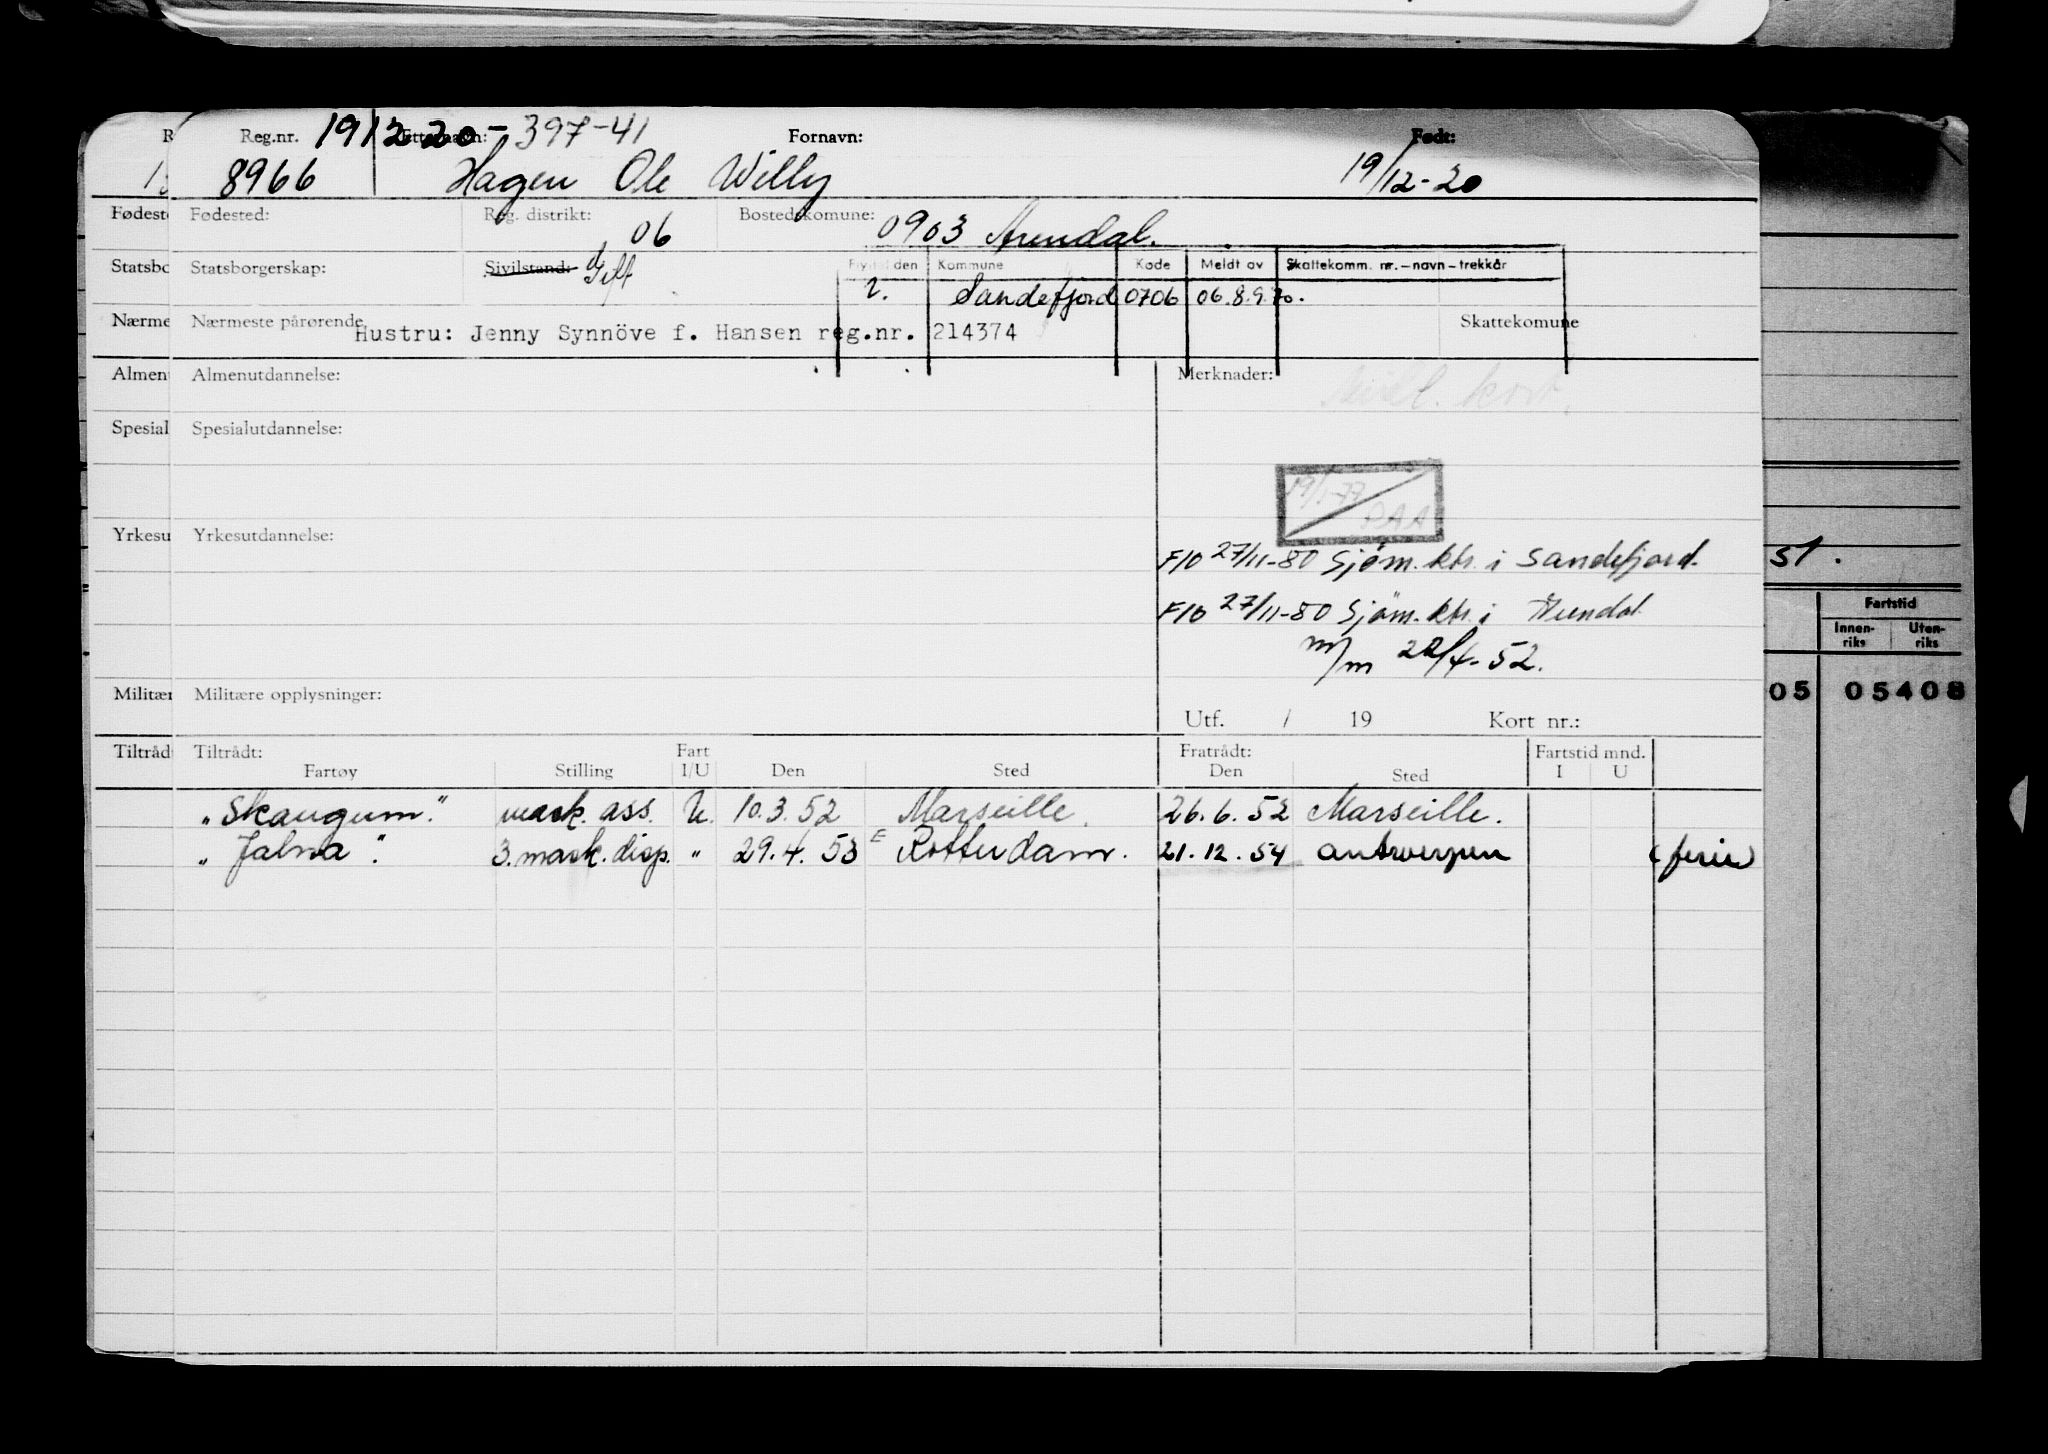 Reg.nr. 191220- Etternavn: 397-41 Fornavn: Født:
8966 Hagen Ole Willy 19/12-20
Fødested: Reg. distrikt: 06 Bostedskomune: 0903 Arendal.
Statsborgerskap: Sivilstand: Gift
Flyttet den Kommune Kode Meldt av Skattekomm. nr.-navn-trekkår
2. Sandefjord 0706 06.8.9.70.
Nærmeste pårørende Hustru: Jenny Synnöve f. Hansen reg.nr. 214374 Skattekomune
Almenutdannelse: Merknader:
kort.
Spesialutdannelse:
19/1-77
PAA
Yrkesutdannelse:
F10 27/11-80 Sjöm.ktr. i Sandefjord.
F10 27/11-80 Sjöm.ktr. i Arendal
m/m 22/4-52.
Militære opplysninger:
Utf. / 19 Kort nr.:
Tiltrådt: Fart Fratrådt: Fartstid mnd.
Fartøy Stilling I/U Den Sted Den Sted I U
"Skaugum." mask. ass. U. 10.3.52 Marseille. 26.6.52 Marseille.
"Jalna". 3.mask.disp. " 29.4.53 Rotterdam. 21.12.54 Antwerpen (ferie)
st.
Fartstid
Innen-riks Uten-riks
05 05408